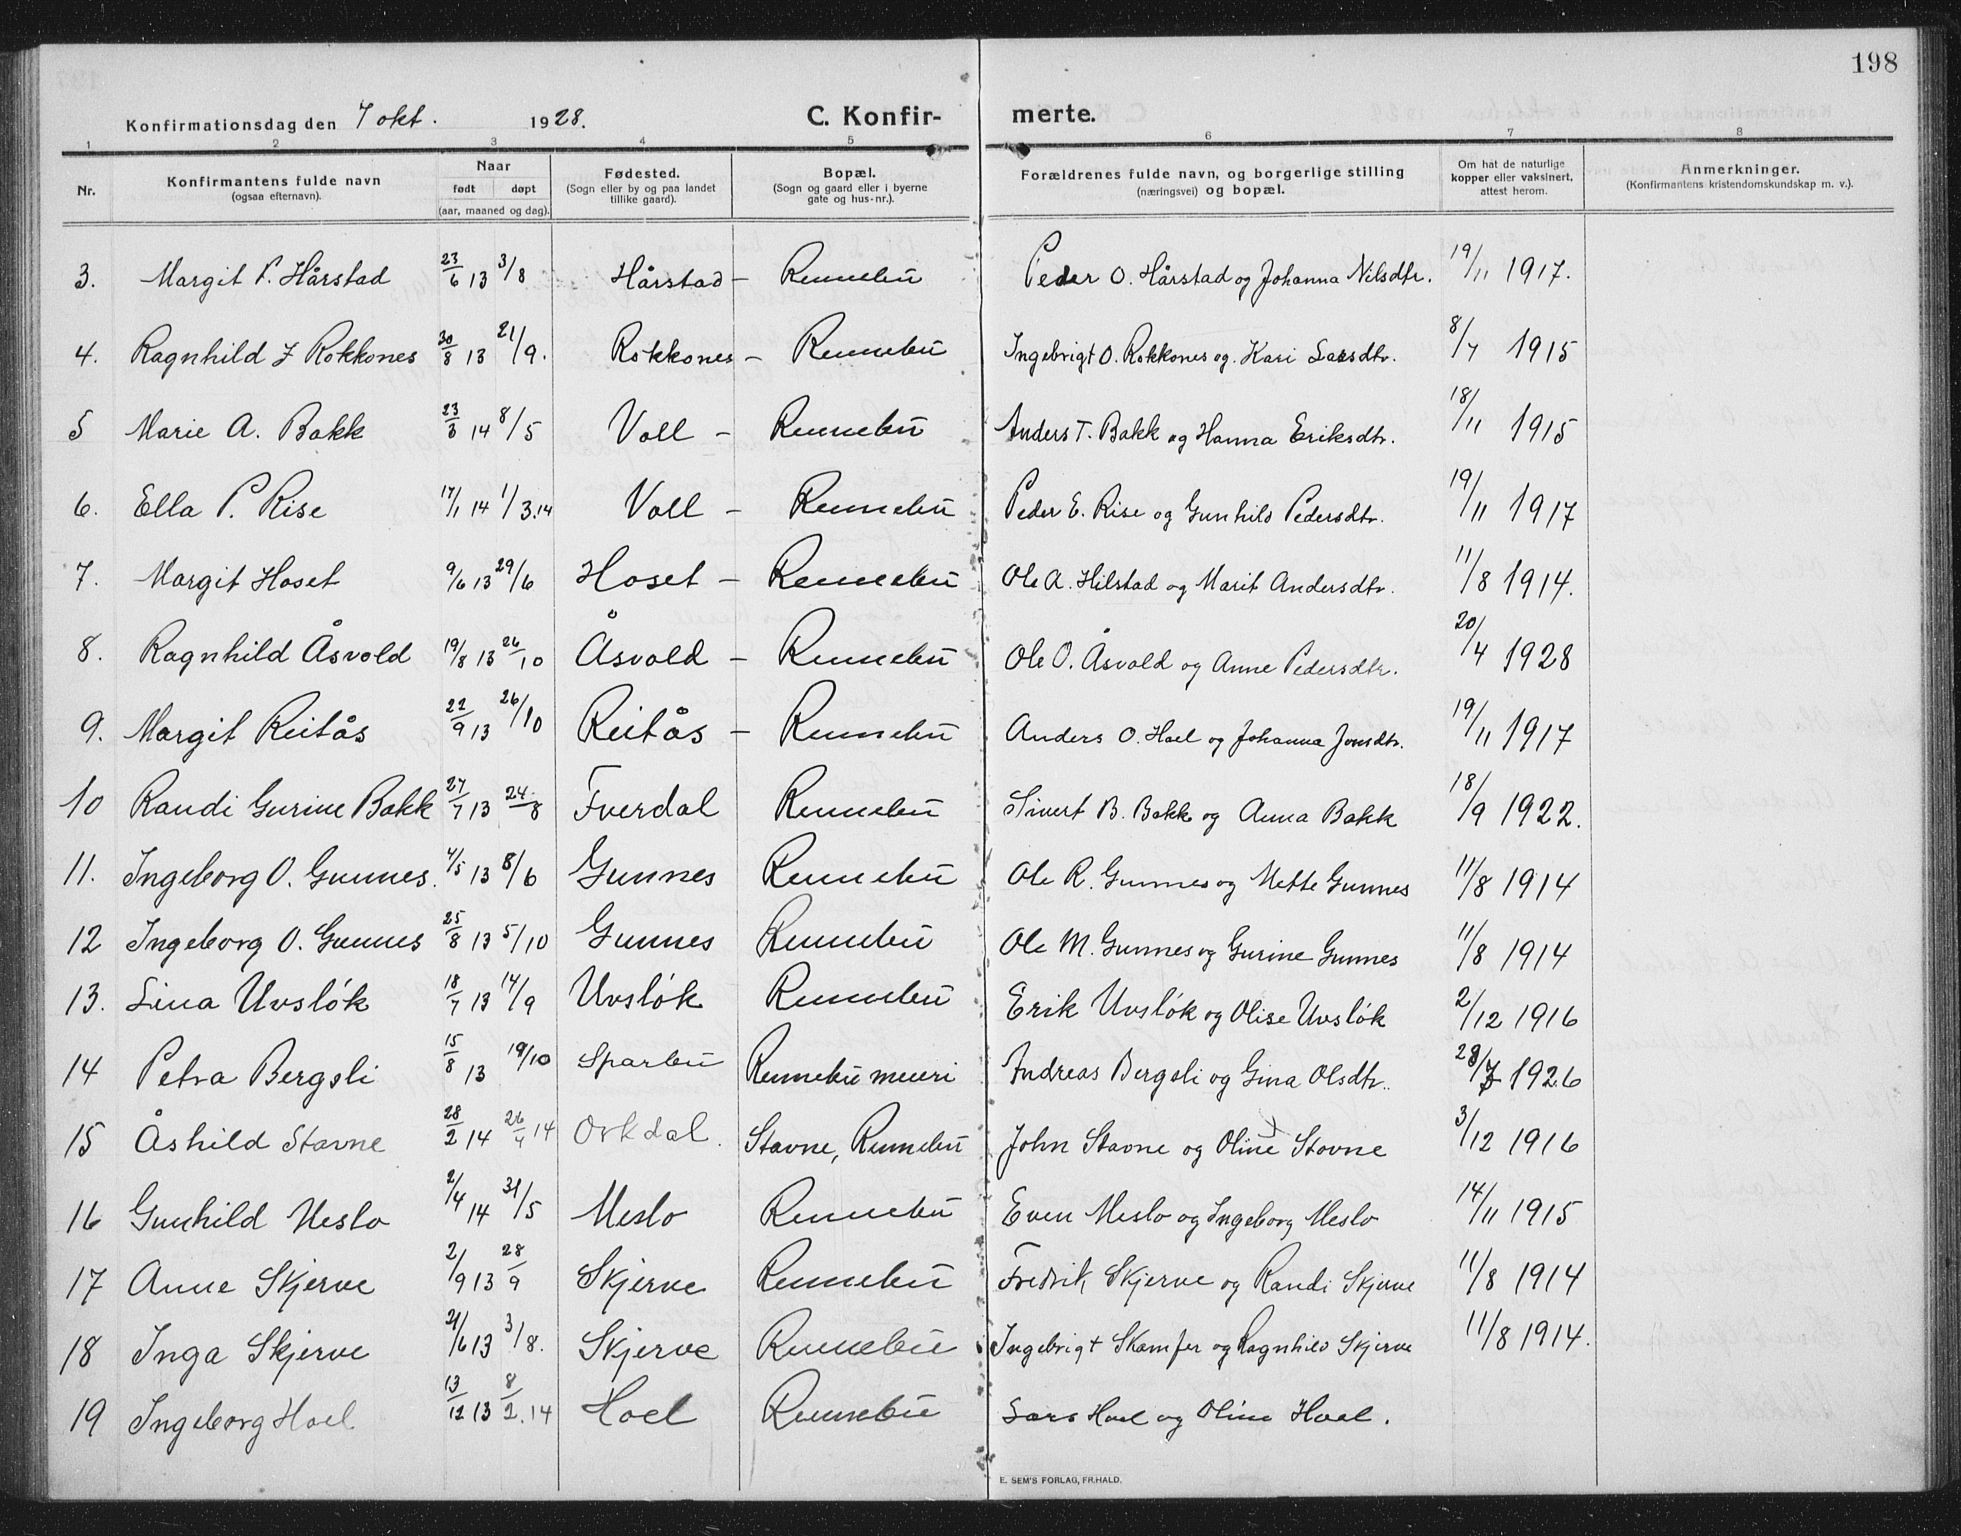 198
Konfirmationsdag den 7 okt. 1928. C. Konfir- merte.
1 2 3 4 5 6 7 8
Nr. Konfirmantens fulde navn (ogsaa efternavn). Naar født døpt (aar, maaned og dag). Fødested. (Sogn eller by og paa landet tillike gaard). Bopæl. (Sogn og gaard eller i byerne gate og hus-nr.). Forældrenes fulde navn, og borgerlige stilling (næringsvei) og bopæl. Om hat de naturlige kopper eller vaksinert, attest herom. Anmerkninger. (Konfirmantens kristendomskundskap m. v.).
3. Margit P. Hårstad 23/6 13 3/8 Hårstad – Rennebu Peder O. Hårstad og Johanna Nilsdtr. 19/11 1917.
4. Ragnhild I Rokkones 30/8 13 21/9. Rokkones – Rennebu Ingebrigt O. Rokkones og. Kari Larsdtr. 8/7 1915
5 Marie A. Bakk 23/3 14 8/5 Voll – Rennebu Anders T. Bakk og Hanna Eriksdtr. 18/11 1915
6. Ella P. Rise 17/1 14 1/3.14 Voll – Rennebu Peder E. Rise og Gunhild Pedersdtr. 19/11 1917
7. Margit Hoset 9/6 13 29/6 Hoset – Rennebu Ole A. Hilstad og Marit Andersdtr. 11/8 1914.
8. Ragnhild Åsvold 19/8 13 26/10 Åsvold – Rennebu Ole O. Åsvold og Anne Pedersdtr. 20/4 1928
9. Margit Reitås 22/9 13 26/10 Reitås – Rennebu Anders O. Hoel og Johanna Jonsdtr. 19/11 1917
10 Randi Gurine Bakk 27/7 13 24/8 Fverdal Rennebu Sivert B. Bakk og Anna Bakk 18/9 1922.
11. Ingeborg O. Gunnes. 4/5 13 8/6 Gunnes Rennebu Ole R. Gunnes og Mette Gunnes 11/8 1914
12 Ingeborg O. Gunnes 25/8 13 5/10 Gunnes Rennebu Ole M. Gunnes og Gurine Gunnes 11/8 1914
13. Lina Uvsløk 18/7 13 14/9 Uvsløk Rennebu Erik Uvsløk og Olise Uvsløk 2/12 1916
14 Petra Bergsli 15/8 13 19/10 Sparbu Rennebu meieri Andreas Bergsli og Gina Olsdtr. 28/7 1926
15 Åshild Stavne 28/2 14 26/4 14 Orkdal. Stavne, Rennebu John Stavne og Oline Stavne 3/12 1916
16 Gunhild Meslo 2/4 14 31/5 Meslo Rennebu Even Meslo og Ingeborg Meslo 14/11 1915
17 Anne Skjerve 2/9 13 28/9 Skjerve Rennebu Fredrik Skjerve og Randi Skjerve 11/8 1914
18 Inga Skjerve 21/6 13 3/8. Skjerve Rennebu Ingebrigt Skamfer og Ragnhild Skjerve 11/8 1914.
19 Ingeborg Hoel 13/12 13 8/2.14 Hoel Rennebu Lars Hoel og Oline Hoel.
E. SEM'S FORLAG, FR.HALD.